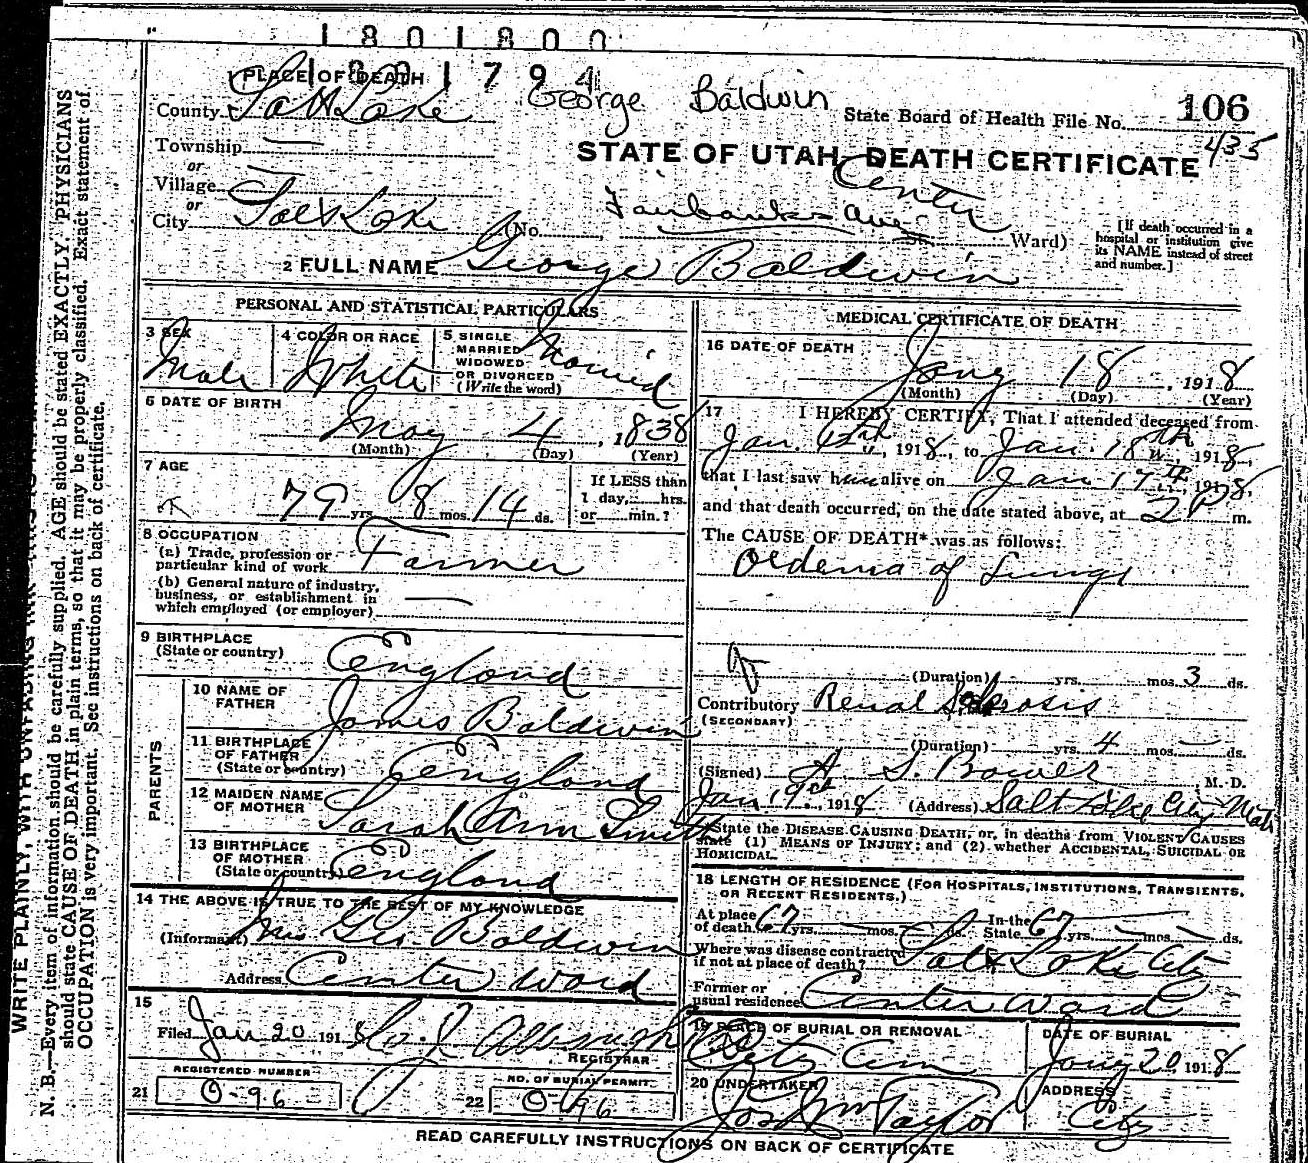 1801800
1801794
PLACE OF DEATH
George Baldwin
County Salt Lake
State Board of Health File No. 106
435
Township
or
STATE OF UTAH, DEATH CERTIFICATE
Village
or
City Salt Lake (No. Fairbanks Ave Center Ward)
[If death occurred in a hospital or institution give its NAME instead of street and number.]
2 FULL NAME George Baldwin
PERSONAL AND STATISTICAL PARTICULARS
3 SEX Male
4 COLOR OR RACE White
5 SINGLE MARRIED WIDOWED OR DIVORCED (Write the word) Married
6 DATE OF BIRTH
May 4, 1838
(Month) (Day) (Year)
7 AGE
79 yrs. 8 mos. 14 ds.
If LESS than 1 day, hrs. or min.?
8 OCCUPATION
(a) Trade, profession or particular kind of work Farmer
(b) General nature of industry, business, or establishment in which employed (or employer)
9 BIRTHPLACE (State or country) England
PARENTS
10 NAME OF FATHER James Baldwin
11 BIRTHPLACE OF FATHER (State or country) England
12 MAIDEN NAME OF MOTHER Sarah Ann Smith
13 BIRTHPLACE OF MOTHER (State or country) England
14 THE ABOVE IS TRUE TO THE BEST OF MY KNOWLEDGE
(Informant) Mrs Geo. Baldwin
Address Center Ward
15
Filed Jan 20 1918
REGISTRAR
REGISTERED NUMBER
21 O-96
NO. OF BURIAL PERMIT
22 O-96
MEDICAL CERTIFICATE OF DEATH
16 DATE OF DEATH
Jany 18, 1918
(Month) (Day) (Year)
17 I HEREBY CERTIFY, That I attended deceased from
Jan. 1918, to Jan. 18th, 1918,
that I last saw him alive on Jan 17th, 1918,
and that death occurred, on the date stated above, at 2 P m.
The CAUSE OF DEATH* was as follows:
Oedema of Lungs
(Duration) yrs. mos. 3 ds.
Contributory Renal Sclerosis
(SECONDARY)
(Duration) yrs. 4 mos. — ds.
(Signed) A. S. Bower M. D.
Jan 19th, 1918 (Address) Salt Lake City Utah
*State the DISEASE CAUSING DEATH, or, in deaths from VIOLENT CAUSES
state (1) MEANS OF INJURY; and (2) whether ACCIDENTAL, SUICIDAL OR
HOMICIDAL.
18 LENGTH OF RESIDENCE (FOR HOSPITALS, INSTITUTIONS, TRANSIENTS, OR RECENT RESIDENTS.)
At place of death 67 yrs. — mos. — ds. In the State 67 yrs. — mos. — ds.
Where was disease contracted if not at place of death? Salt Lake City
Former or usual residence Center Ward
19 PLACE OF BURIAL OR REMOVAL City Cem
DATE OF BURIAL Jany 20 1918
20 UNDERTAKER Jos Wm Taylor
ADDRESS City
READ CAREFULLY INSTRUCTIONS ON BACK OF CERTIFICATE
WRITE PLAINLY, WITH UNFADING INK
N. B.—Every item of information should be carefully supplied. AGE should be stated EXACTLY. PHYSICIANS
should state CAUSE OF DEATH in plain terms, so that it may be properly classified. Exact statement of
OCCUPATION is very important. See instructions on back of certificate.